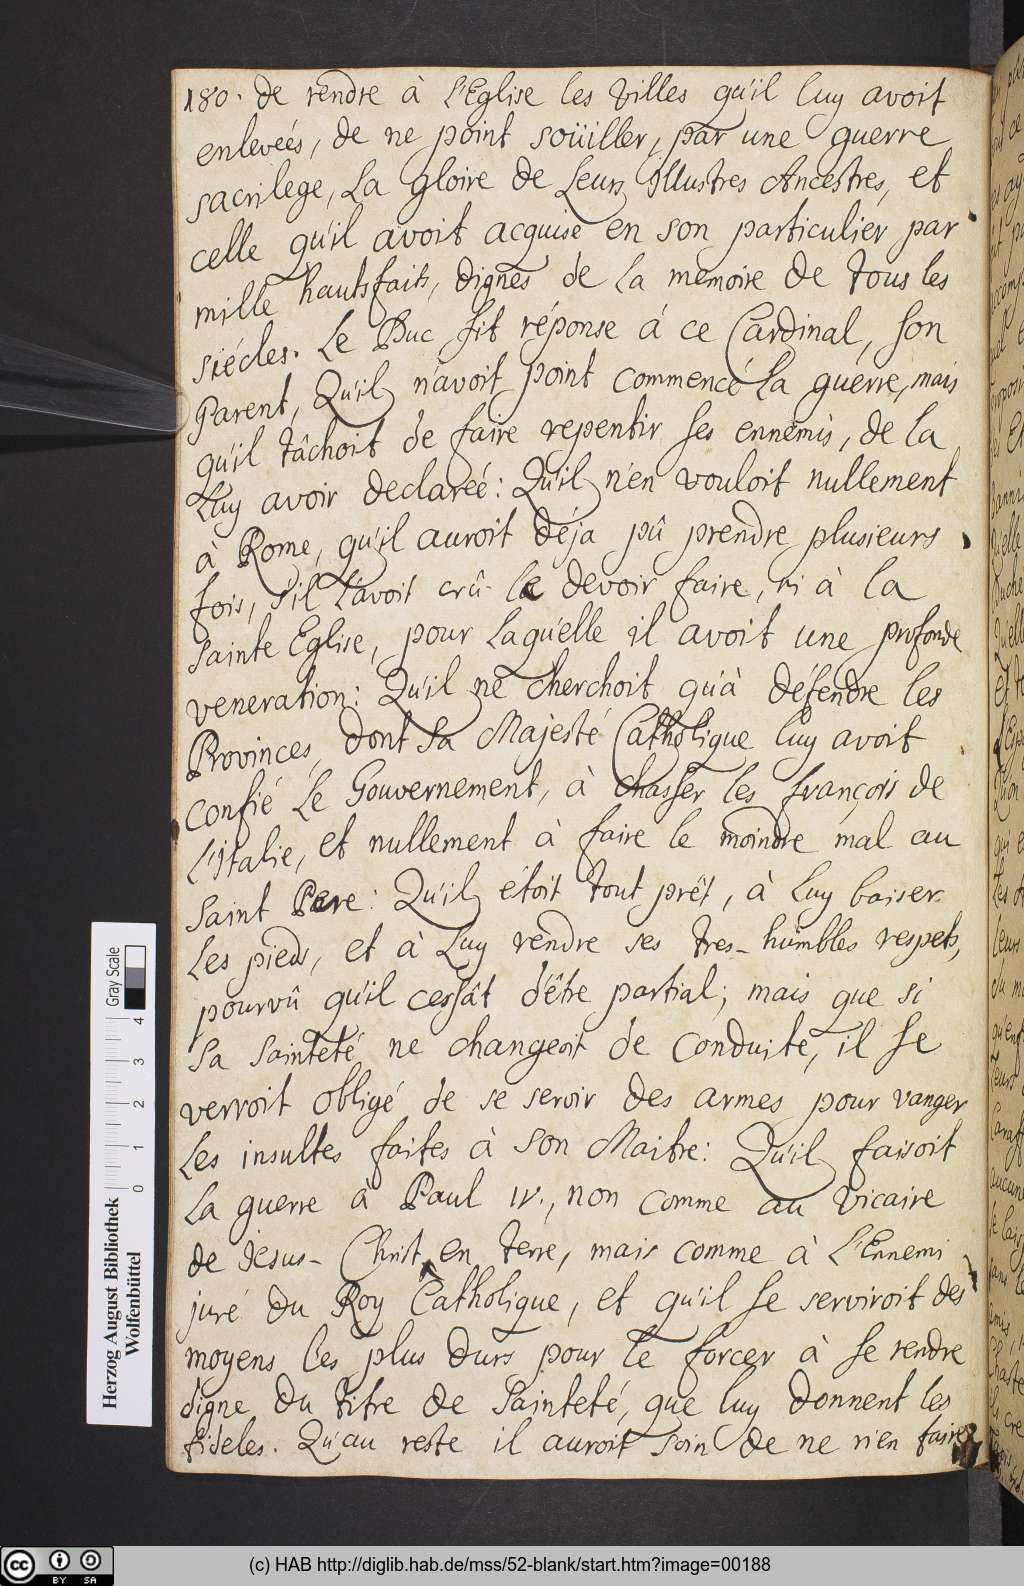 180. de rendre à L'Eglise les Villes qu'il luy avoit
enleveés, de ne point soüiller, par une guerre
sacrilege, La gloire de Leurs Illustres Ancestres, et
celle qu'il avoit acquise en son particulier par
mille hautsfaits, dignes de La memoire de tous les
siécles. Le Duc fit réponse à ce Cardinal, son
Parent, Qu'il n'avoit point commencé La guerre, mais
qu'il tâchoit de faire repentir ses ennemis, de la
Luy avoir declareé: Qu'il n'en vouloit nullement
à Rome, qu'il auroit déja pû prendre plusieurs
fois, s'il L'avoit crû le devoir faire, ni à la
Sainte Eglise, pour Laqu'elle il avoit une profonde
veneration: Qu'il ne cherchoit qu'à défendre les
Provinces, dont Sa Majesté Catholique luy avoit
confié Le Gouvernement, à chasser les françois de
L'Italie, et nullement à faire le moindre mal au
Saint Pere: Qu'il étoit tout prêt, à Luy baiser
Les pieds, et à Luy rendre ses tres-humbles respets,
pourvû qu'il cessât d'être partial; mais que si
Sa Sainteté ne changeoit de conduite, il se
verroit obligé de se servir des armes pour vanger
Les insultes faites à son Maitre: Qu'il faisoit
La guerre à Paul IV., non comme au Vicaire
de Jesus-Christ en terre, mais comme à L'Ennemi
juré du Roy Catholique, et qu'il se serviroit des
moyens les plus durs pour le forcer à se rendre
digne du titre de Sainteté, que luy donnent les
fideles. Qu'au reste il auroit soin de ne rien faire
Herzog August Bibliothek
Wolfenbüttel
0 1 2 3 4
Gray Scale
cc BY SA
(c) HAB http://diglib.hab.de/mss/52-blank/start.htm?image=00188